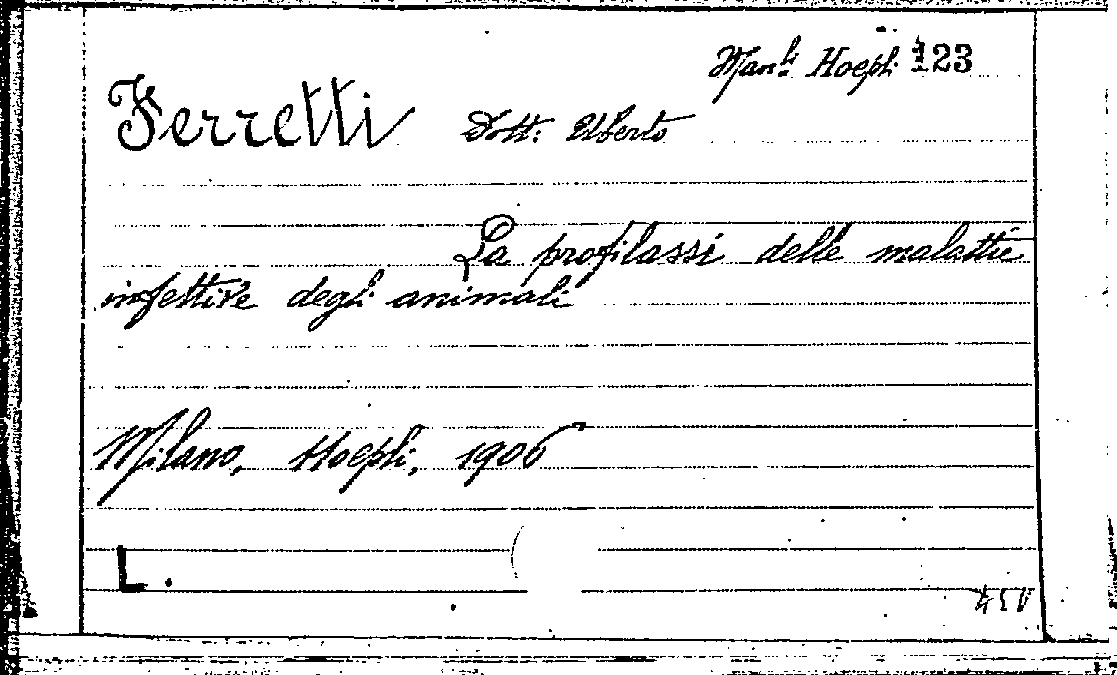 Man.li Hoepli 123
Ferretti Dott. Uberto
La profilassi delle malattie
infettive degli animali
Milano, Hoepli, 1906
L.